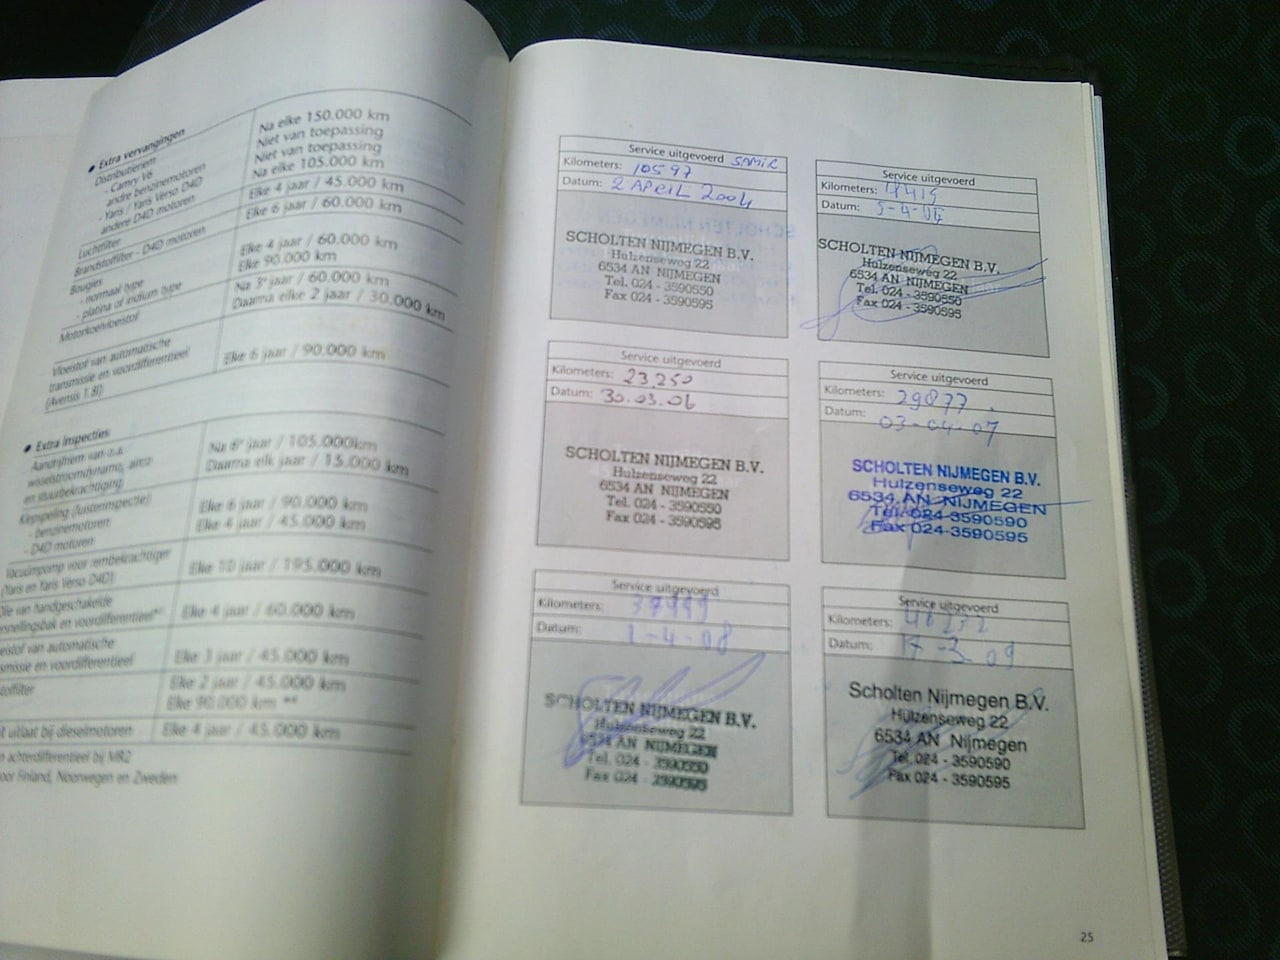 ● Extra vervangingen
Distributieriem
- Camry V6 Na elke 150.000 km
andere benzinemotoren Niet van toepassing
- Yaris / Yaris Verso D4D Niet van toepassing
andere D4D motoren Na elke 105.000 km
Luchtfilter Elke 4 jaar / 45.000 km
Brandstoffilter - D4D motoren Elke 6 jaar / 60.000 km
Bougies
- normaal type Elke 4 jaar / 60.000 km
- platina of iridium type Elke 90.000 km
Motorkoelvloeistof Na 3e jaar / 60.000 km
Daarna elke 2 jaar / 30.000 km
Vloeistof van automatische
transmissie en voordifferentieel Elke 6 jaar / 90.000 km
(Avensis 1.8l)
● Extra inspecties
Aandrijfriem van o.a. Na 6e jaar / 105.000km
wisselstroomdynamo, airco Daarna elk jaar / 15.000 km
en stuurbekrachtiging
Klepspeling (luisterinspectie)
- benzinemotoren Elke 6 jaar / 90.000 km
- D4D motoren Elke 4 jaar / 45.000 km
Vacuümpomp voor rembekrachtiger Elke 10 jaar / 195.000 km
(Yaris en Yaris Verso D4D)
Olie van handgeschakelde
versnellingsbak en voordifferentieel** Elke 4 jaar / 60.000 km
van automatische
en voordifferentieel Elke 3 jaar / 45.000 km
Elke 2 jaar / 45.000 km
Elke 90.000 km **
uitlaat bij dieselmotoren Elke 4 jaar / 45.000 km
achterdifferentieel bij MR2
Finland, Noorwegen en Zweden
Service uitgevoerd SAMIR
Kilometers: 10597
Datum: 2 APRIL 2004
SCHOLTEN NIJMEGEN B.V.
Hulzenseweg 22
6534 AN NIJMEGEN
Tel. 024 - 3590550
Fax 024 - 3590595
Service uitgevoerd
Kilometers:
Datum:
SCHOLTEN NIJMEGEN B.V.
Hulzenseweg 22
6534 AN NIJMEGEN
Tel. 024 - 3590550
Fax 024 - 3590595
Service uitgevoerd
Kilometers: 23.250
Datum: 30.03.06
SCHOLTEN NIJMEGEN B.V.
Hulzenseweg 22
6534 AN NIJMEGEN
Tel. 024 - 3590550
Fax 024 - 3590595
Service uitgevoerd
Kilometers: 29877
Datum: 03-04-07
SCHOLTEN NIJMEGEN B.V.
Hulzenseweg 22
6534 AN NIJMEGEN
Tel. 024-3590590
Fax 024-3590595
Service uitgevoerd
Kilometers:
Datum: 1-4-08
SCHOLTEN NIJMEGEN B.V.
Hulzenseweg 22
6534 AN NIJMEGEN
Tel. 024 - 3590550
Fax 024 - 3590595
Service uitgevoerd
Kilometers:
Datum: 17-3-09
Scholten Nijmegen B.V.
Hulzenseweg 22
6534 AN Nijmegen
Tel. 024 - 3590590
Fax 024 - 3590595
25